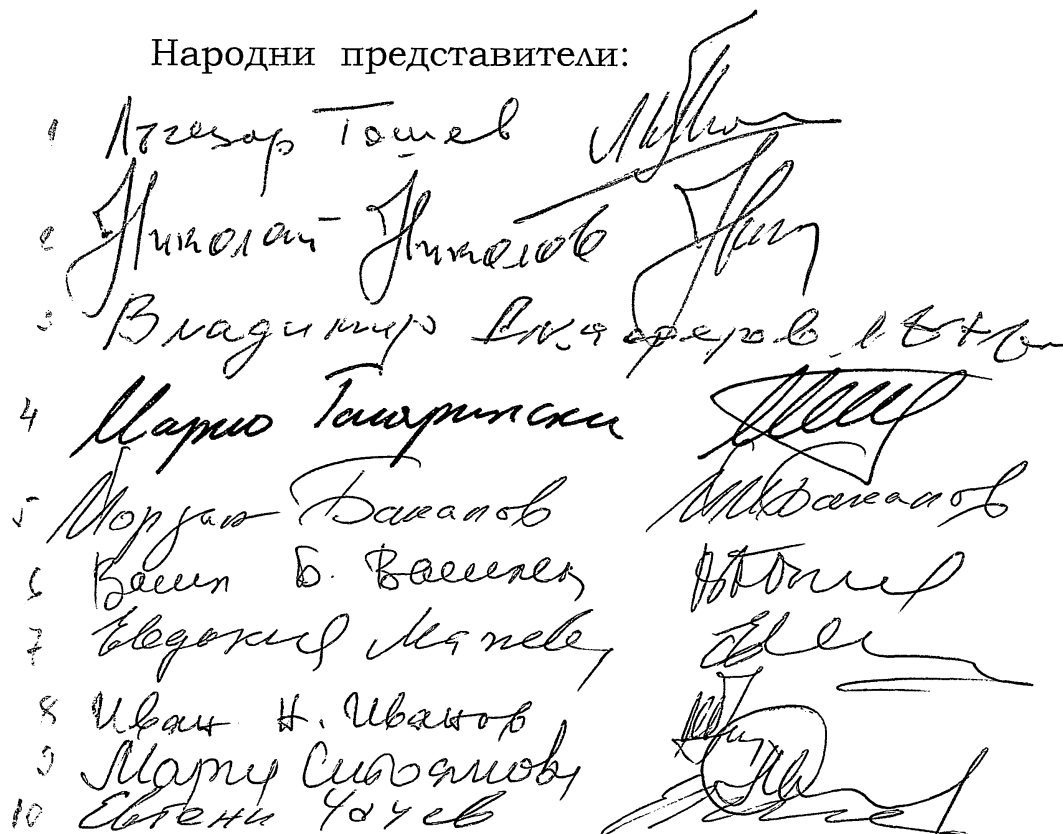 Народни представители:
1 Лъчезар Тошев
2 Николай Николов
3 Владимир Джафаров
4 Марио Тагарински
5 Йордан Бакалов
6 Васил Б. Василев
7 Евдокия Манева
8 Иван Н. Иванов
9 Мария Стоянова
10 Евгени Чачев